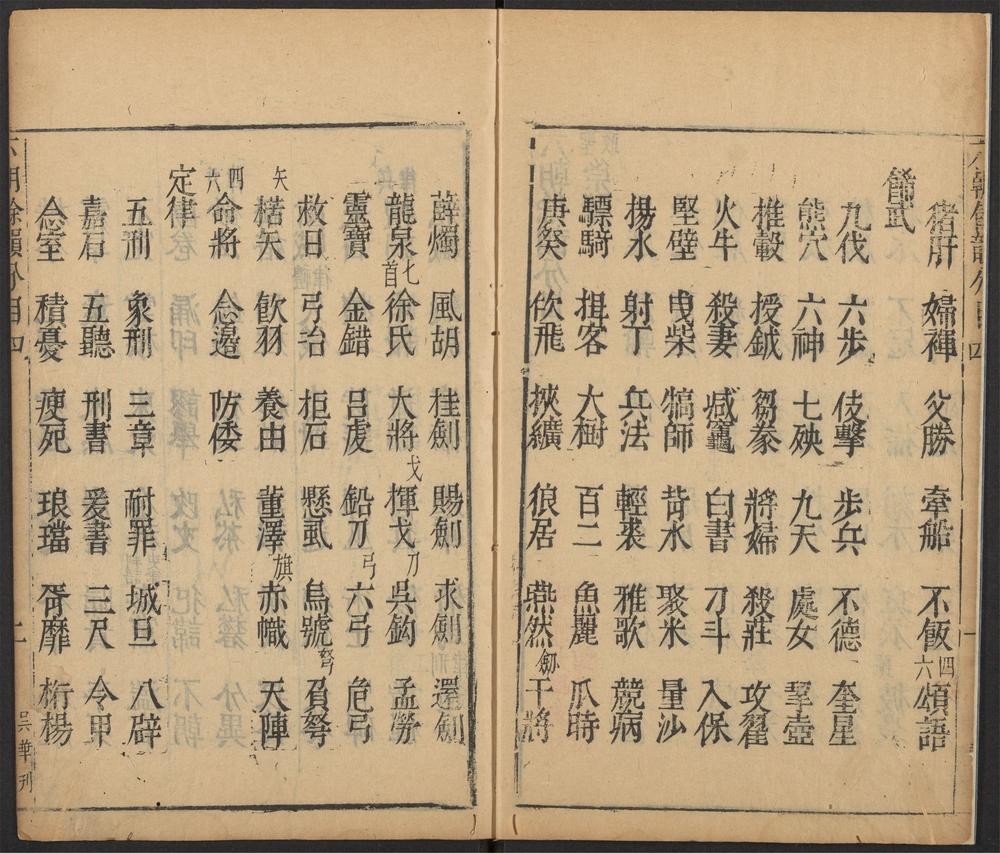 豬肝 婦褌 父勝 牽船 不飯 四六 頌語
營武
九伐 六步 伎擊 步兵 不德 奎星
熊穴 六神 七殃 九天 處女 挈壺
推轂 授鉞 芻豢 將婦 殺莊 攻翟
火牛 殺妻 減竈 白書 刀斗 入保
堅壁 曳柴 犒師 背水 聚米 量沙
揚水 射丁 兵法 輕裘 雅歌 競病
驃騎 揖客 大樹 百二 魚麗 瓜時
庚癸 佽飛 挾纊 狼居 燕然 劒 干將
薛燭 風胡 桂劍 賜劍 求劍 還劍
龍泉 七首 徐氏 大將 戈 揮戈 刀 吳鈎 孟勞
靈寶 金錯 呂虔 鉛刀 弓 六弓 危弓
救日 弓冶 柜石 懸虱 烏號 弩 負弩
矢 楛矢 飲羽 養由 董澤 旗 赤幟 天陣
四六 命將 念邊 防倭
定律
五刑 象刑 三章 耐罪 城旦 八辟
嘉石 五聽 刑書 爰書 三尺 令甲
念室 積憂 瘐死 琅璫 胥靡 桁楊
四 二 吳華刊